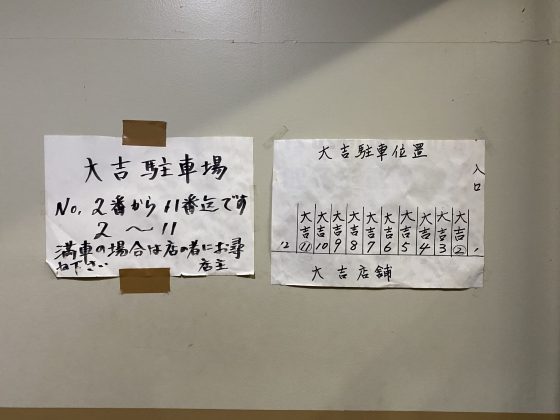 大吉駐車場
No. 2番から11番迄です
2〜11
満車の場合は店の者にお尋
ね下さい 店主
大吉駐車位置
入口
12 大吉⑪ 大吉10 大吉9 大吉8 大吉7 大吉6 大吉5 大吉4 大吉3 大吉② 1
大吉店舗